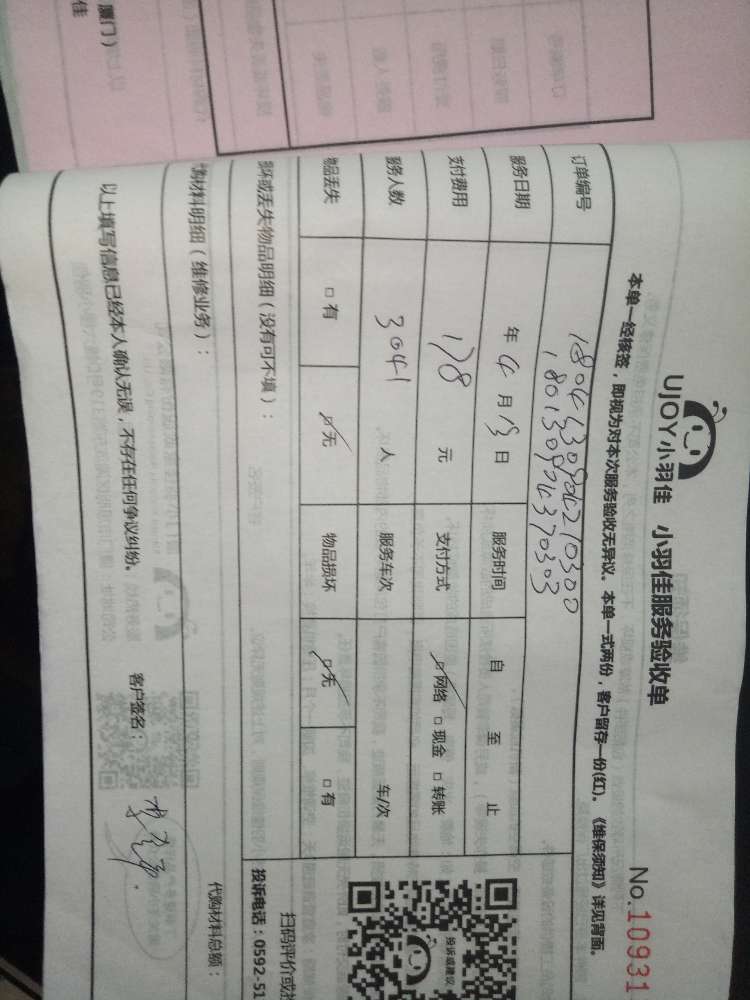 厦门）
佳
UJOY小羽佳 小羽佳服务验收单
No.10931
本单一经核签，即视为对本次服务验收无异议。本单一式两份，客户留存一份(红)。《维保须知》详见背面。
订单编号
服务日期 年 4 月 13 日 服务时间 自 至 止
支付费用 178 元 支付方式 网络 现金 转账
服务人数 3041 人 服务车次 车/次
物品丢失 有 无 物品损坏 无 有
损坏或丢失物品明细（没有可不填）：
代购材料明细（维修业务）：
代购材料总额：
以上填写信息已经本人确认无误，不存在任何争议纠纷。 客户签名：
投诉或建议
扫码评价或投
投诉电话：0592-51